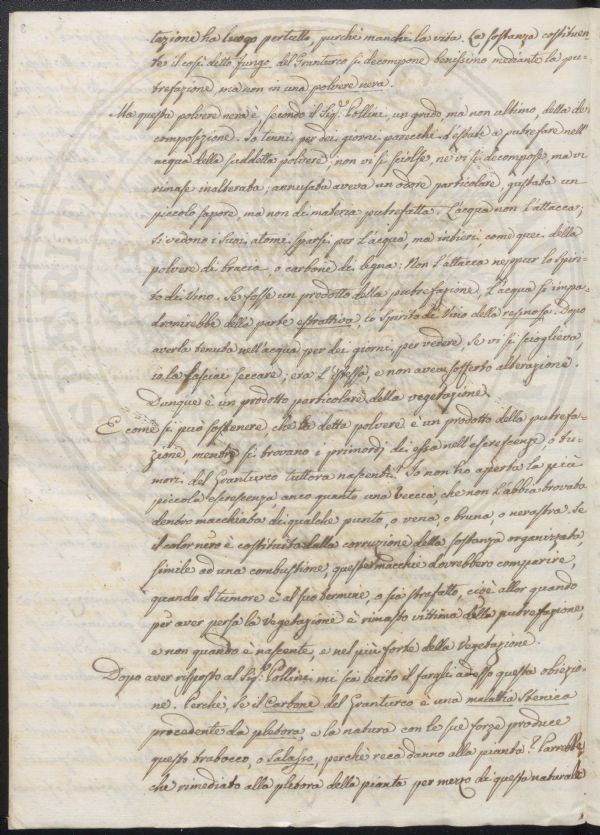 tazione ha luogo pertutto, purchè manche la vita. La sostanza costituen=
te il così detto fungo del Granturco si decompone benissimo mediante la pu=
trefazione ma non in una polvere nera.
Ma questa polvere nera è secondo il Sig.r Pollini, un grado, ma non ultimo, della de=
composizione. Io tenni per dei giorni parecchi d'estate a putrefare nell'
acqua della suddetta polvere; non vi si sciolse, nè vi si decompose, ma vi
rimase inalterata; annusata aveva un odore particolare, gustata un
piccolo sapore, ma non di materia putrefatta. L'acqua non l'attacca;
si vedono i suoi atomi sparsi per l'acqua, ma intieri come quei della
polvere di bracia o carbone di legna: Non l'attacca neppur lo Spiri=
to di Vino. Se fosse un prodotto della putrefazione, L'acqua si impa=
dronirebbe della parte estrattiva, lo Spirito di Vino della resinosa. Dopo
averla tenuta nell'acqua per dei giorni, per vedere se vi si scioglieva,
io la fasciai seccare; era l'istessa, e non aveva sofferto alterazione.
Dunque è un prodotto particolare della vegetazione.
E come si può sostenere che la detta polvere è un prodotto della putrefa=
zione, mentre si trovano i primordj di essa nell'escrescenze, o tu=
mori del Granturco tuttora nascenti? Io non ho aperta la più
piccola escrescenza, anco quanto una veccia che non l'abbia trovata
dentro macchiata di qualche punto, o vena, o bruna, o nerastra. Se
il color nero è costituito dalla corruzione della sostanza organizzata,
simile ad una combustione, queste macchie dovrebbero comparire,
quando il tumore è al suo termine, o sia strafatto, cioè allor quando
per aver persa la vegetazione è rimasto vittima della putrefazione,
e non quando è nascente, e nel più forte della Vegetazione.
Dopo aver risposto al Sig.r Pollini, mi sia lecito il fargli adesso questa obiezio=
ne. Perchè, se il Carbone del Granturco è una malattia Stenica
procedente da pletora, e la natura con le sue forze produce
questo trabocco, o Salasso, perchè reca danno alla pianta? Parrebbe,
che rimediato alla pletora della pianta per mezzo di questo naturale